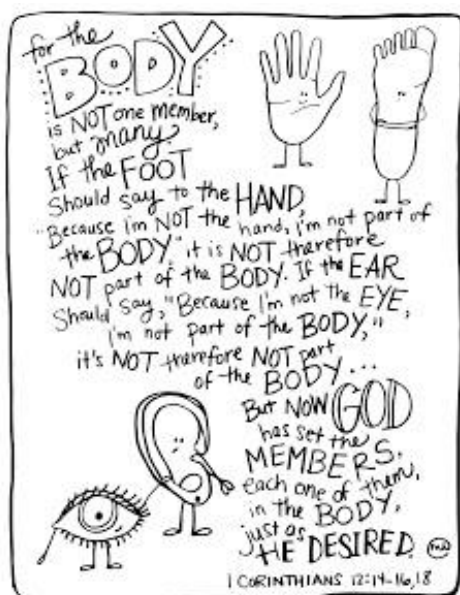 for the
BODY
is NOT one member,
but many.
If the FOOT
Should say to the HAND,
"Because i'm NOT the hand, i'm not part of
the BODY," it is NOT therefore
NOT part of the BODY. If the EAR
Should say, "Because I'm not the EYE,
i'm not part of the BODY,"
it's NOT therefore NOT part
of the BODY...
But NOW GOD
has set the
MEMBERS,
each one of them,
in the BODY,
just as
HE DESIRED.
1 CORINTHIANS 12:14-16,18